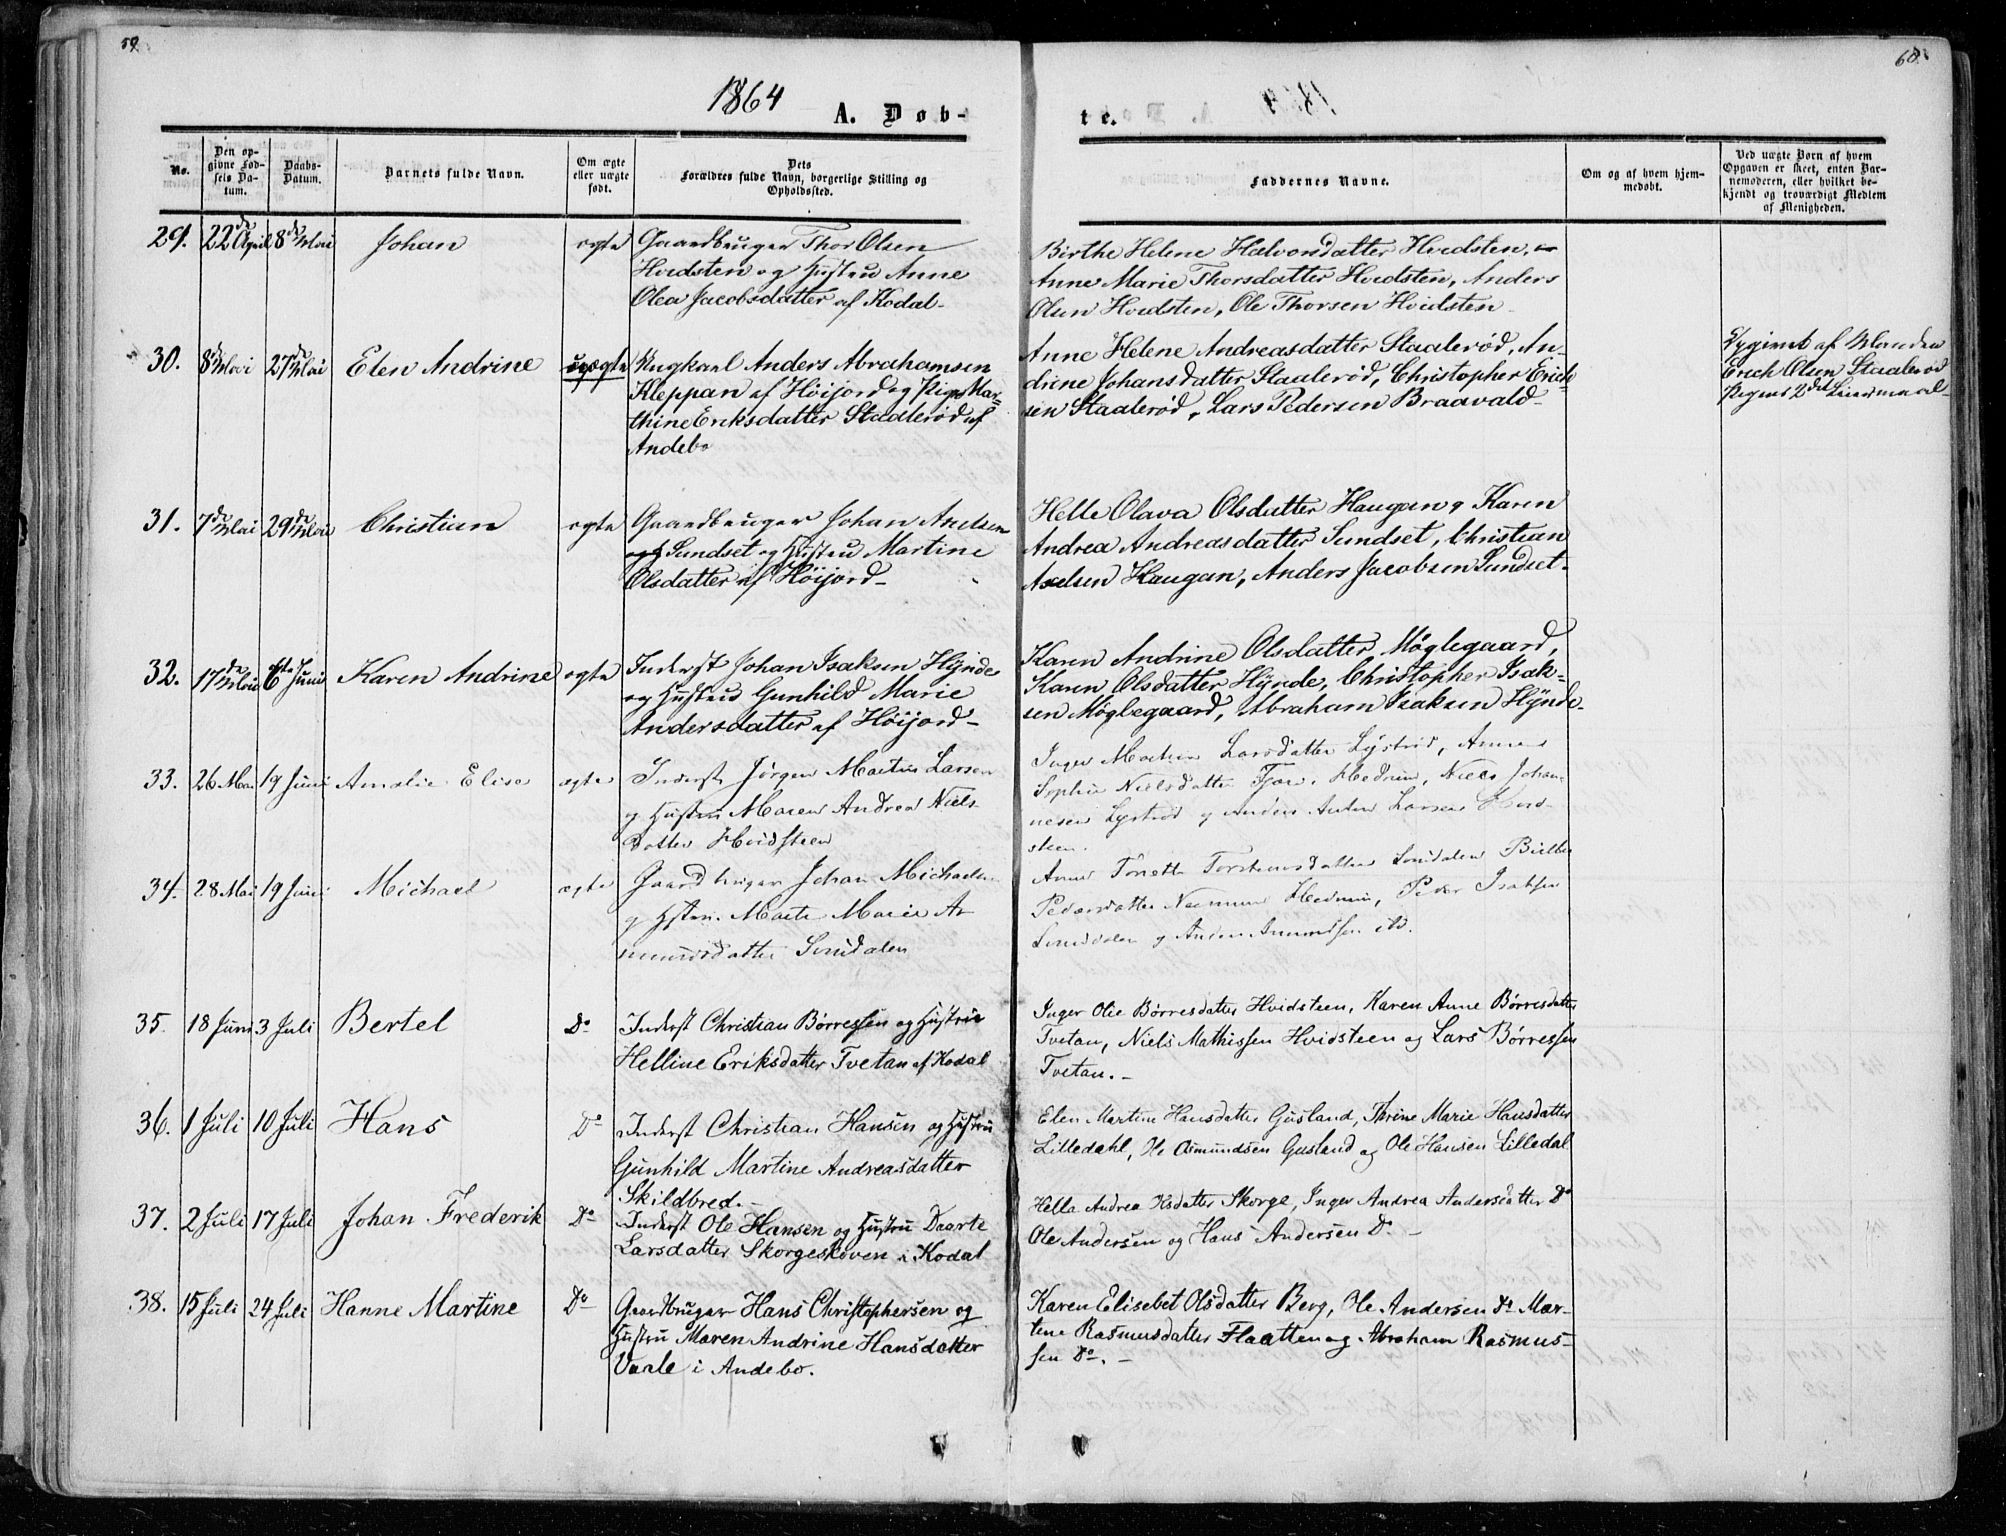 59.
60.
1864
A. Døb-
te.
No.
Den op-
givne Fød-
sels Da-
tum.
Daabs-
Datum.
Barnets fulde Navn.
Om ægte
eller uægte
født.
Dets
Forældres fulde Navn, borgerlige Stilling og
Opholdssted.
Faddernes Navne.
Om og af hvem hjem-
medøbt.
Ved uægte Børn af hvem
Opgaven er skeet, enten Bar-
nemoderen, eller hvilket be-
kjendt og troværdigt Medlem
af Menigheden.
29. 22de April 8de Mai Johan ægte Gaardbruger Thor Olsen
Hvidsten og Hustru Anne
Olea Jacobsdatter af Kodal-
Birthe Helene Halvorsdatter Hvidsten,
Anne Marie Thorsdatter Hvidsten, Anders
Olsen Hvidsten, Ole Thorsen Hvidsten
30. 8de Mai 27de Mai Elen Andrine uægte Ungkarl Anders Abrahamsen
Kleppan af Höijord og Pige Mar-
thine Eriksdatter Staalerød af
Andebo
Anne Helene Andreasdatter Staalerød, An-
drine Johansdatter Staalerød, Christopher Erick-
sen Staalerød, Lars Pedersen Braavald-
Opgivet af Manden
Erich Olsen Staalerød
Pigens 2det Leiermaal-
31. 7de Mai 29de Mai Christian ægte Gaardbruger Johan Axelsen
Sundset og Hustru Martine
Olsdatter af Höijord-
Helle Olava Olsdatter Haugan, Karen
Andrea Andreasdatter Sundset, Christian
Axelsen Haugan, Anders Jacobsen Sundset-
32. 17de Mai 6te Juni Karen Andrine ægte Inderst Johan Isaksen Hÿnde
og Hustru Gunhild Marie
Andersdatter af Höijord-
Karen Andrine Olsdatter Møglegaard,
Karen Olsdatter Hÿnde, Christopher Isak-
sen Møglegaard, Abraham Isaksen Hÿnde-
33. 26 Mai 19 Juni Amalie Elise ægte Inderst Jørgen Martin Larsen
og Hustru Maren Andrea Niels-
datter Hvidsteen
Inger Larsdatter Lÿstad, Anne
Sophie Nielsdatter Hedrum, Niels Johan-
nesen og Anders Anton Larsen Hvid-
steen.
34. 28 Mai 19 Juni Michael ægte Gaardbruger Johan Michaelsen
og Marie
mundsdatter
Anne Torstensdatter
Pedersdatter Hedrum, Peder Isaksen
og Anders Amundsen ibd.
35. 18 Juni 3 Juli Bertel Do Inderst Christian Børresen og Hustru
Helline Eriksdatter Tvetan af Kodal
Inger Olie Børresdatter Hvidsteen, Karen Anne Børresdatter
Tvetan, Niels Mathissen Hvidsteen og Lars Børressen
Tvetan.-
36. 1 Juli 10 Juli Hans Do Inderst Christian Hansen og Hustru
Gunhild Martine Andreasdatter
Skildbred.-
Elen Martine Hansdatter Gusland, Thrine Marie Hansdatter
Lilledahl, H. Asmundsen Gusland og Ole Hansen Lilledal
37. 2 Juli 17 Juli Johan Frederik Do Inderst Ole Hansen og Hustru Daarte
Larsdatter Skorgeskoven i Kodal
Hella Andrea Olsdatter Skorge, Inger Andrea Andersdatter Do
Ole Andersen og Hans Andersen Do.-
38. 15 Juli 24 Juli Hanne Martine Do Gaardbruger Hans Christophersen og
Hustru Maren Andrine Hansdatter
Vaale i Andebo.
Karen Elisebet Olsdatter Berg, Ole Andersen Do Mar-
tene Rasmusdatter Flaatten og Abraham Rasmus-
sen Do.-